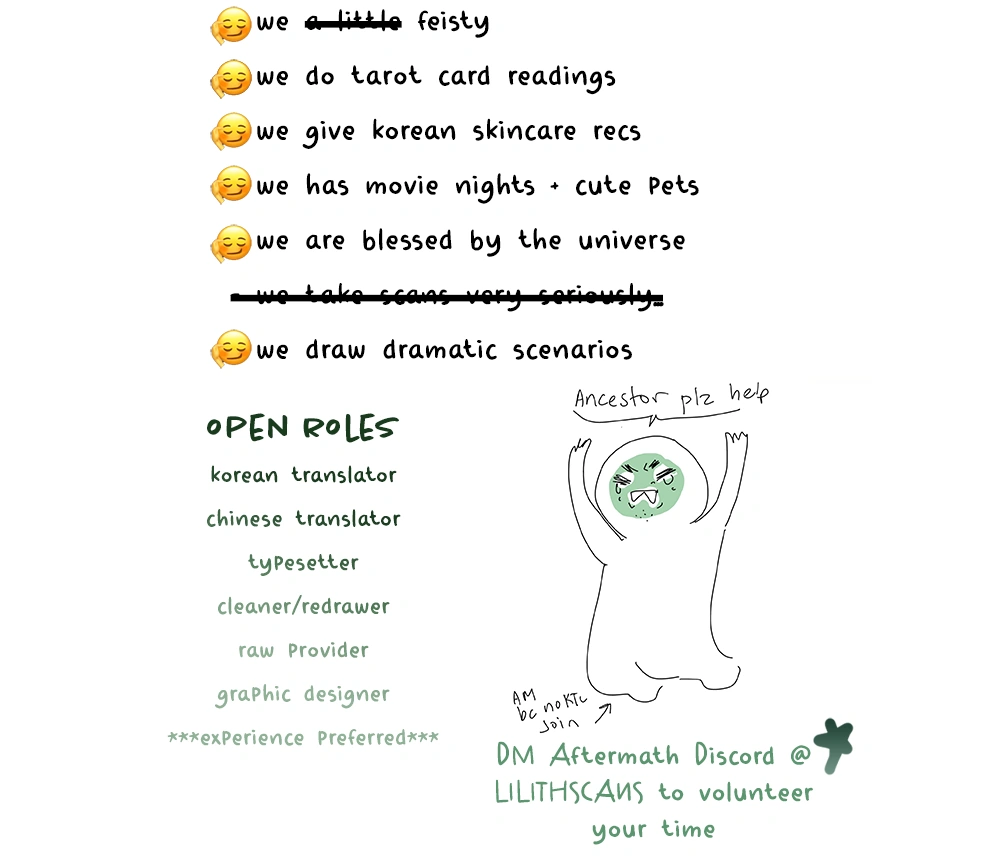 we a little feisty
we do tarot card readings
we give korean skincare recs
we has movie nights + cute pets
we are blessed by the universe
- we take scans very seriously..
we draw dramatic scenarios
Ancestor plz help
OPEN ROLES
korean translator
chinese translator
typesetter
cleaner/redrawer
raw provider
graphic designer
***experience preferred***
AM
bc no KTL
join
DM Aftermath Discord @
LILITHSCANS to volunteer
your time